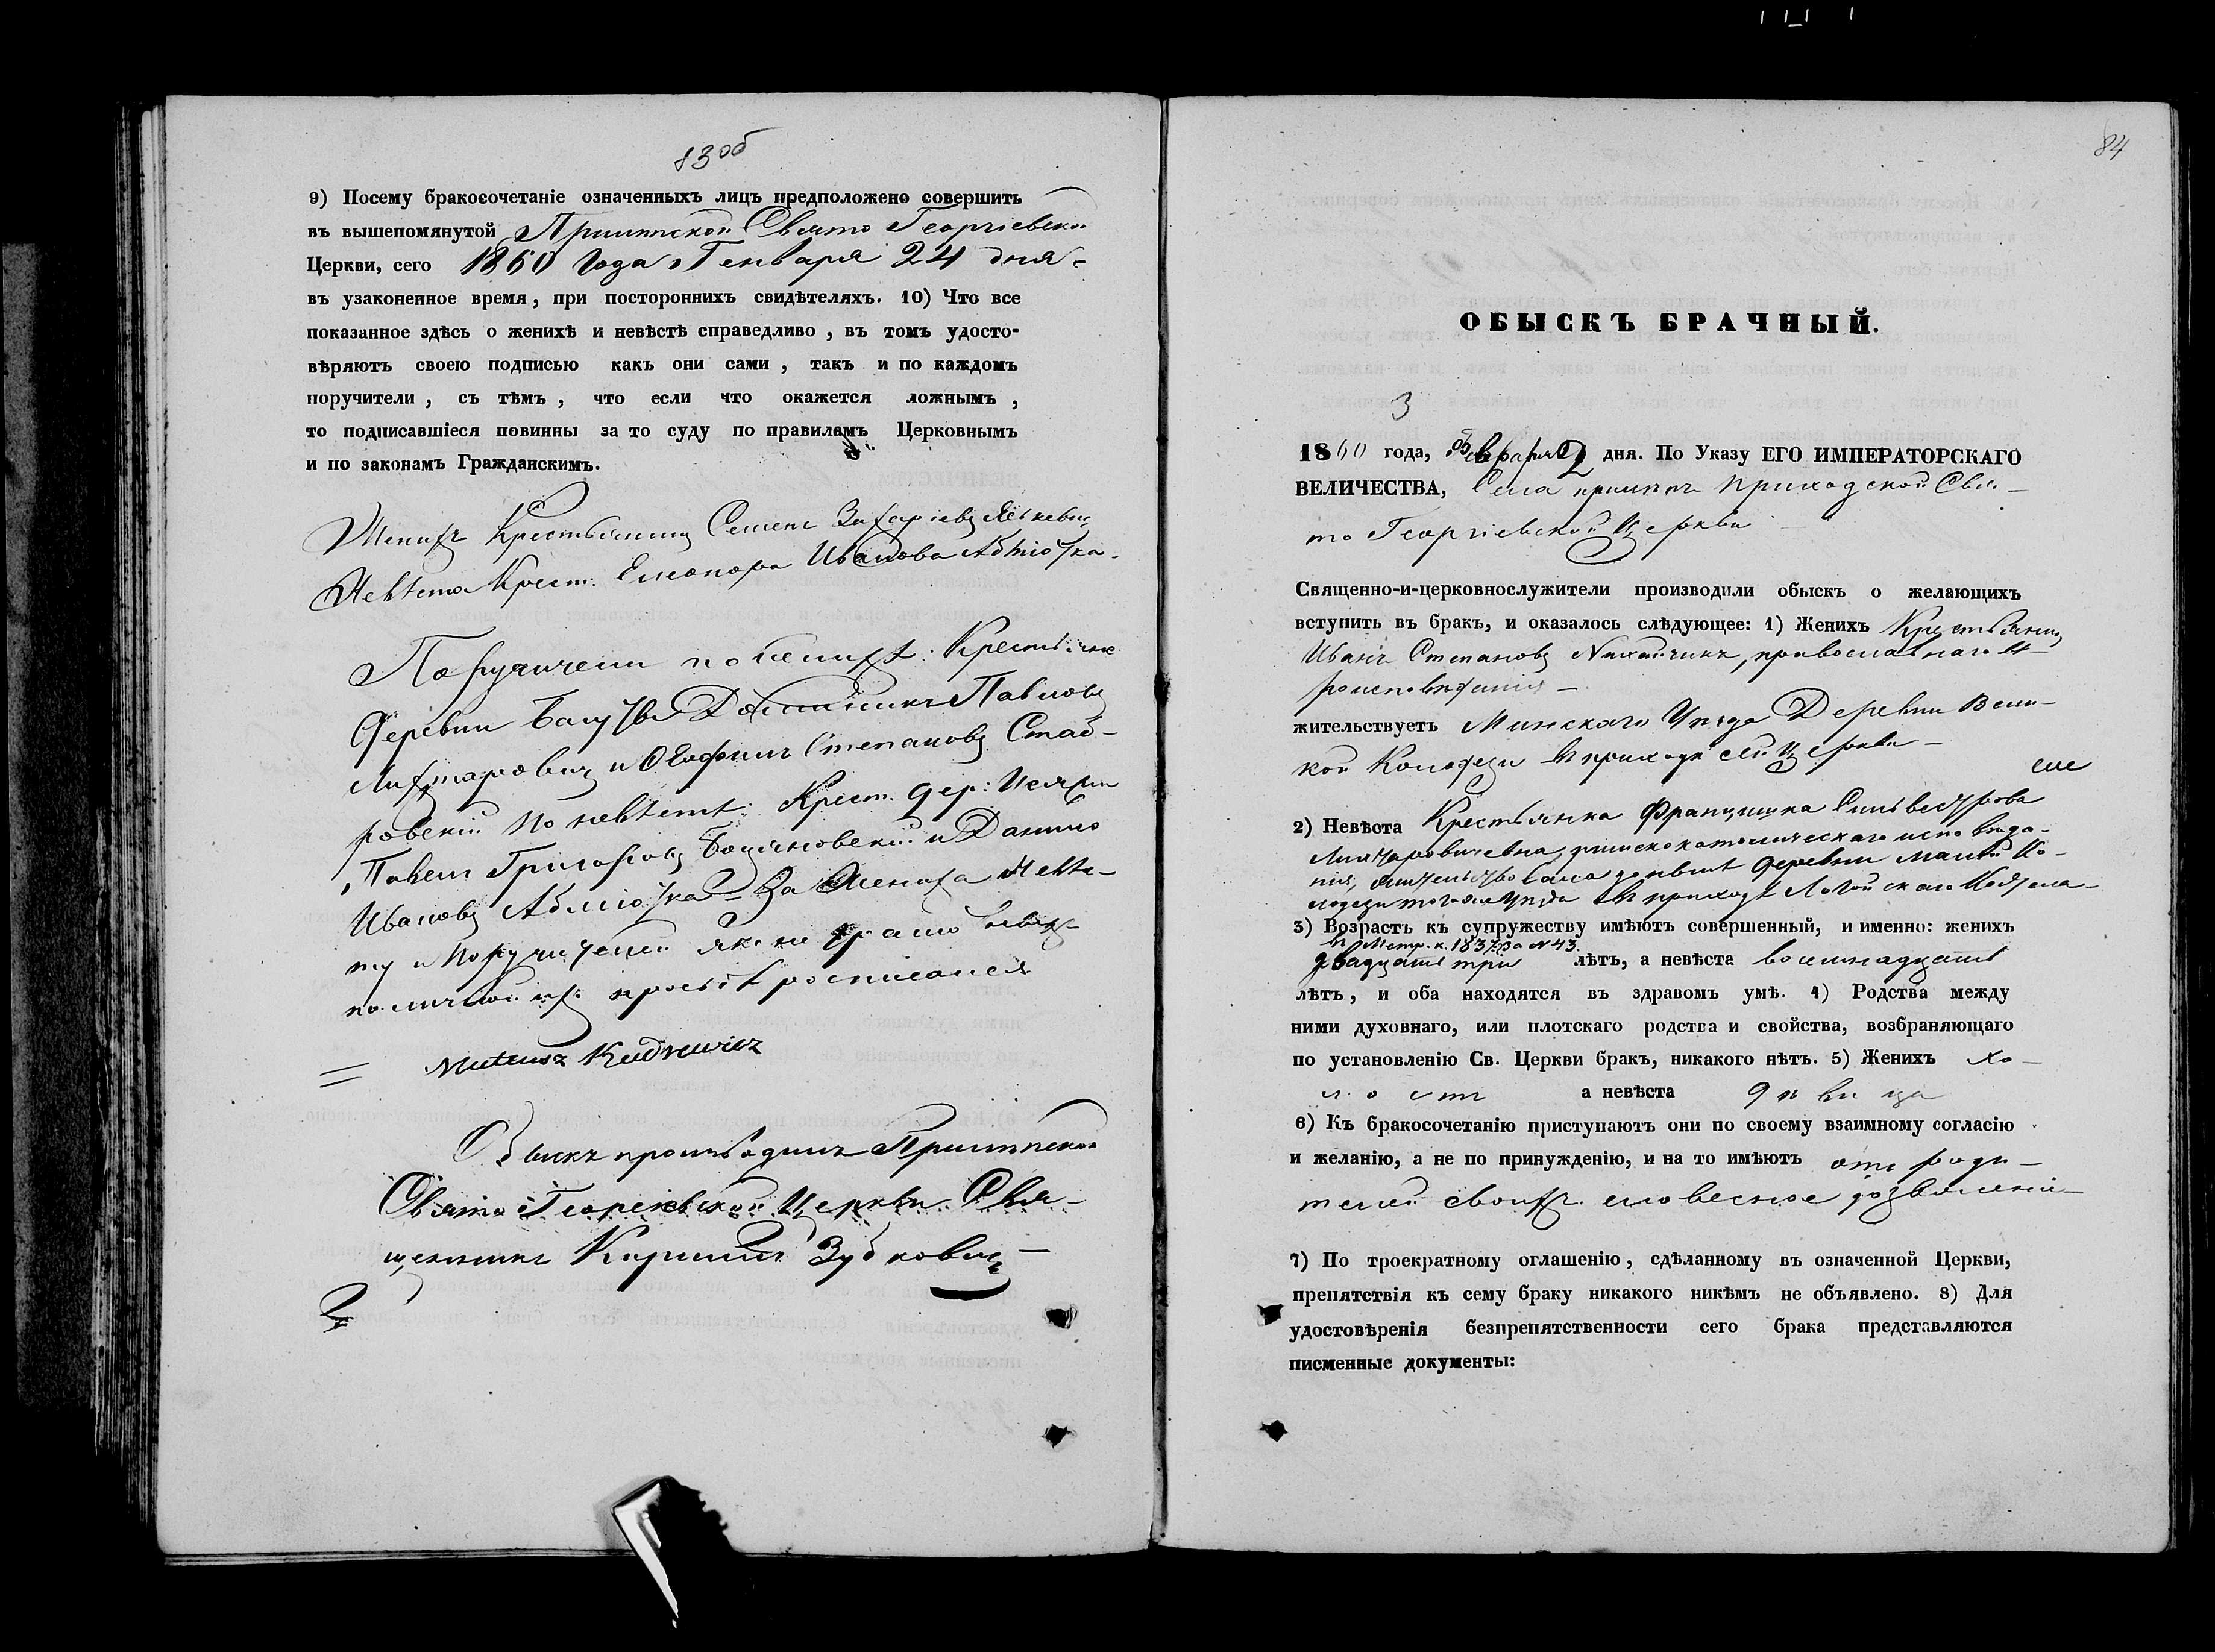 83 об
9) Посему бракосочетаніе означенныхъ лицъ предположено совершить
въ вышепомянутой Прилѣпской Свято Георгіевской
Церкви, сего 1860 года Генваря 24 дня
въ узаконенное время, при постороннихъ свидѣтеляхъ. 10) Что все
показанное здѣсь о женихѣ и невѣстѣ справедливо, въ томъ удосто-
вѣряютъ своею подписью какъ они сами, такъ и по каждомъ
поручители, съ тѣмъ, что если что окажется ложнымъ,
то подписавшіеся повинны за то суду по правиламъ Церковнымъ
и по законамъ Гражданскимъ.
Женихъ Крестьянинъ Семенъ Захаріевъ
Невѣста Крест. Елеонора Иванова
Поручители по женихѣ: Крестьяне
Деревни Павловъ
и Степановъ Стаб-
ровскій По невѣстѣ: Крест. дер:
Павелъ Григорьевъ и Данило
Ивановъ За Жениха Невѣс-
ту и Поручителей грамо
по личной ихъ прозьбѣ росписался
Mateusz Kudrewicz
Обыскъ производилъ Прилѣпской
Свято Георгіевской Церкви Свя-
щенникъ Кириллъ Зубковичъ
84
ОБЫСКЪ БРАЧНЫЙ.
3
1860 года, Февраля 2 дня. По Указу ЕГО ИМПЕРАТОРСКАГО
ВЕЛИЧЕСТВА, Села Прилѣпъ приходской Свя-
то Георгіевской Церкви
Священно-и-церковнослужители производили обыскъ о желающихъ
вступить въ бракъ, и оказалось слѣдующее: 1) Женихъ Крестьянинъ
Иванъ Степановъ православнаго вѣ-
роисповѣданія
жительствуетъ Минскаго Уѣзда Деревни Вели-
кой Колодези въ приходѣ сей Церкви
2) Невѣста Крестьянка Францишка Сильвестрова
римскокатолическаго исповѣда-
нія, жительствовала деревни Малой Ко-
лодези того же Уѣзда въ приходѣ Логойскаго Костела
3) Возрастъ къ супружеству имѣютъ совершенный, и именно: женихъ
въ Метр. к. 1837 за № 43.
двадцать три лѣтъ, а невѣста восемнадцать
лѣтъ, и оба находятся въ здравомъ умѣ. 4) Родства между
ними духовнаго, или плотскаго родства и свойства, возбраняющаго
по установленію Св. Церкви бракъ, никакого нѣтъ. 5) Женихъ хо-
лостъ а невѣста дѣвица
6) Къ бракосочетанію приступаютъ они по своему взаимному согласію
и желанію, а не по принужденію, и на то имѣютъ отъ роди-
телей своихъ словесное дозволеніе
7) По троекратному оглашенію, сдѣланному въ означенной Церкви,
препятствія къ сему браку никакого никѣмъ не объявлено. 8) Для
удостовѣренія безпрепятственности сего брака представляются
писменные документы: